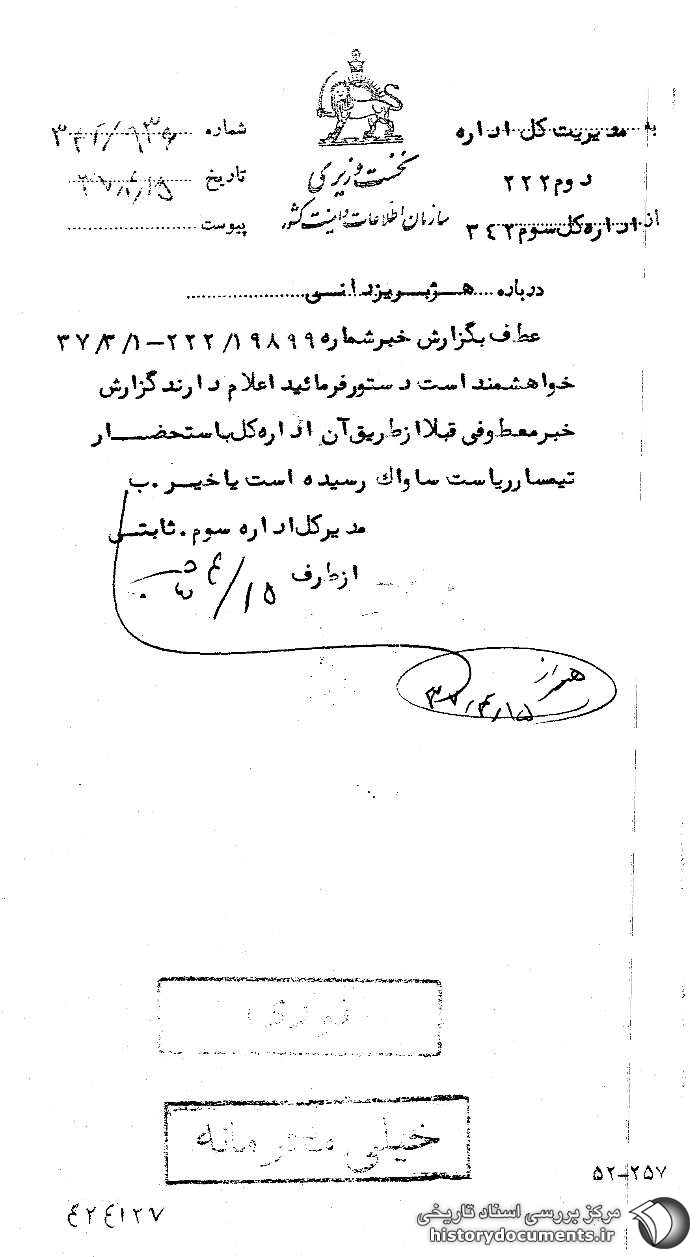 به مدیریت کل اداره
دوم ۲۲۲
از اداره کل سوم ۳۴۲
نخست وزیری
سازمان اطلاعات و امنیت کشور
شماره
تاریخ ۳۷/۴/۱۵
پیوست
درباره هژبر یزدانی
عطف بگزارش خبر شماره ۲۲۲/۱۹۸۹۹-۳۷/۳/۱
خواهشمند است دستور فرمائید اعلام دارند گزارش
خبر معطوفی قبلا از طریق آن اداره کل باستحضار
تیمسار ریاست ساواک رسیده است یا خیر. ب
مدیر کل اداره سوم. ثابتی
از طرف
۴/۱۵
۳۷/۴/۱۵
فوری
خیلی محرمانه
۵۲-۲۵۷
۴۲۴۱۲۷
مرکز بررسی اسناد تاریخی
historydocuments.ir